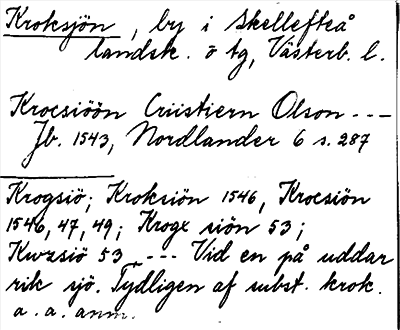 Kroksjön, by i Skellefteå
landsk. o tg, Västerb. l.
Krocsiöön Cristiern Olson ---
Jb. 1543, Nordlander 6 s. 287
Krogsiö; Kroksiön 1546, Krocsiön
1546, 47, 49; Krogx siön 53;
Kwzsiö 53 --- Vid en på uddar
rik sjö. Tydligen af subst. krok.
a. a. anm.